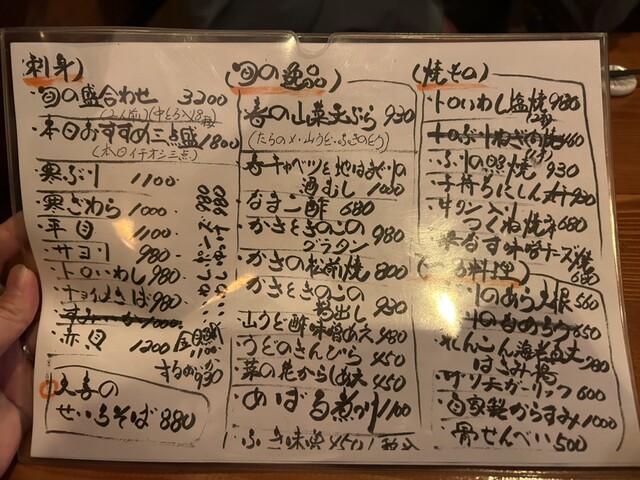 刺身
旬の盛合わせ 3200
(2人前)(中とろ入り8種)
本日おすすめ三点盛 1800
(本日イチオシ三点)
寒ぶり 1100
寒さわら 1000
平目 1100
サヨリ 980
トロいわし 980
チョイめさば 980
赤貝 1200
するめいか
せいろそば 880
旬の逸品
春の山菜天ぷら 930
(たらのメ・山うど・ふきのとう)
春キャベツと地はまぐりの
酒むし 1000
なまこ酢 680
かきときのこの
グラタン 980
かきの松前焼 800
かきときのこの
山うど酢味噌あえ 480
うどのきんぴら 450
菜の花からしあえ 450
めばる煮付 1100
ふき味噌 450
焼もの
トロいわし塩焼 980
ぶりの照焼 930
子持ちにしん 930
牛タン入り
つくね焼 680
米なす味噌チーズ焼
料理
ぶりのあら大根 560
れんこん海老真丈
はさみ揚 780
ガーリック 600
自家製からすみ 1000
骨せんべい 500